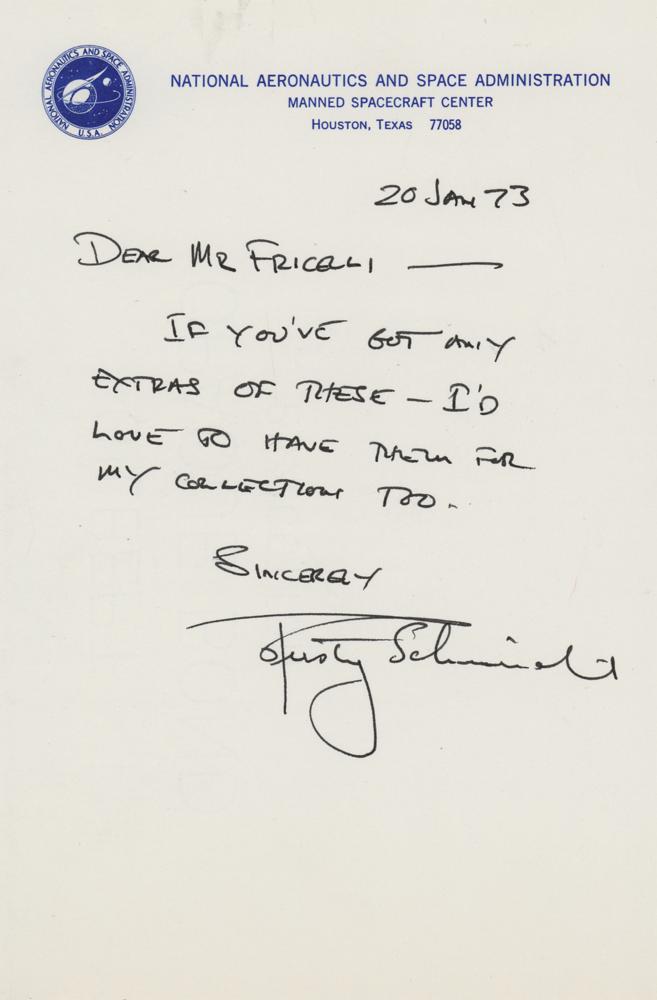 NATIONAL AERONAUTICS AND SPACE ADMINISTRATION
U.S.A.
NATIONAL AERONAUTICS AND SPACE ADMINISTRATION
MANNED SPACECRAFT CENTER
HOUSTON, TEXAS 77058
20 JAN 73
DEAR MR FRICELLI —
IF YOU'VE GOT ANY
EXTRAS OF THESE — I'D
LOVE TO HAVE THEM FOR
MY COLLECTION TOO.
SINCERELY
Rusty Schweickart